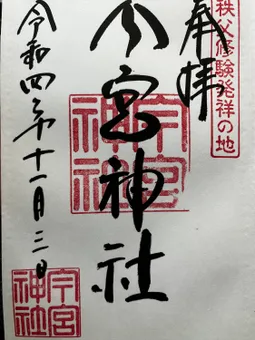 秩父修験発祥の地
奉拝
今宮神社
今宮
神社
令和四年十一月三日
今宮
神社